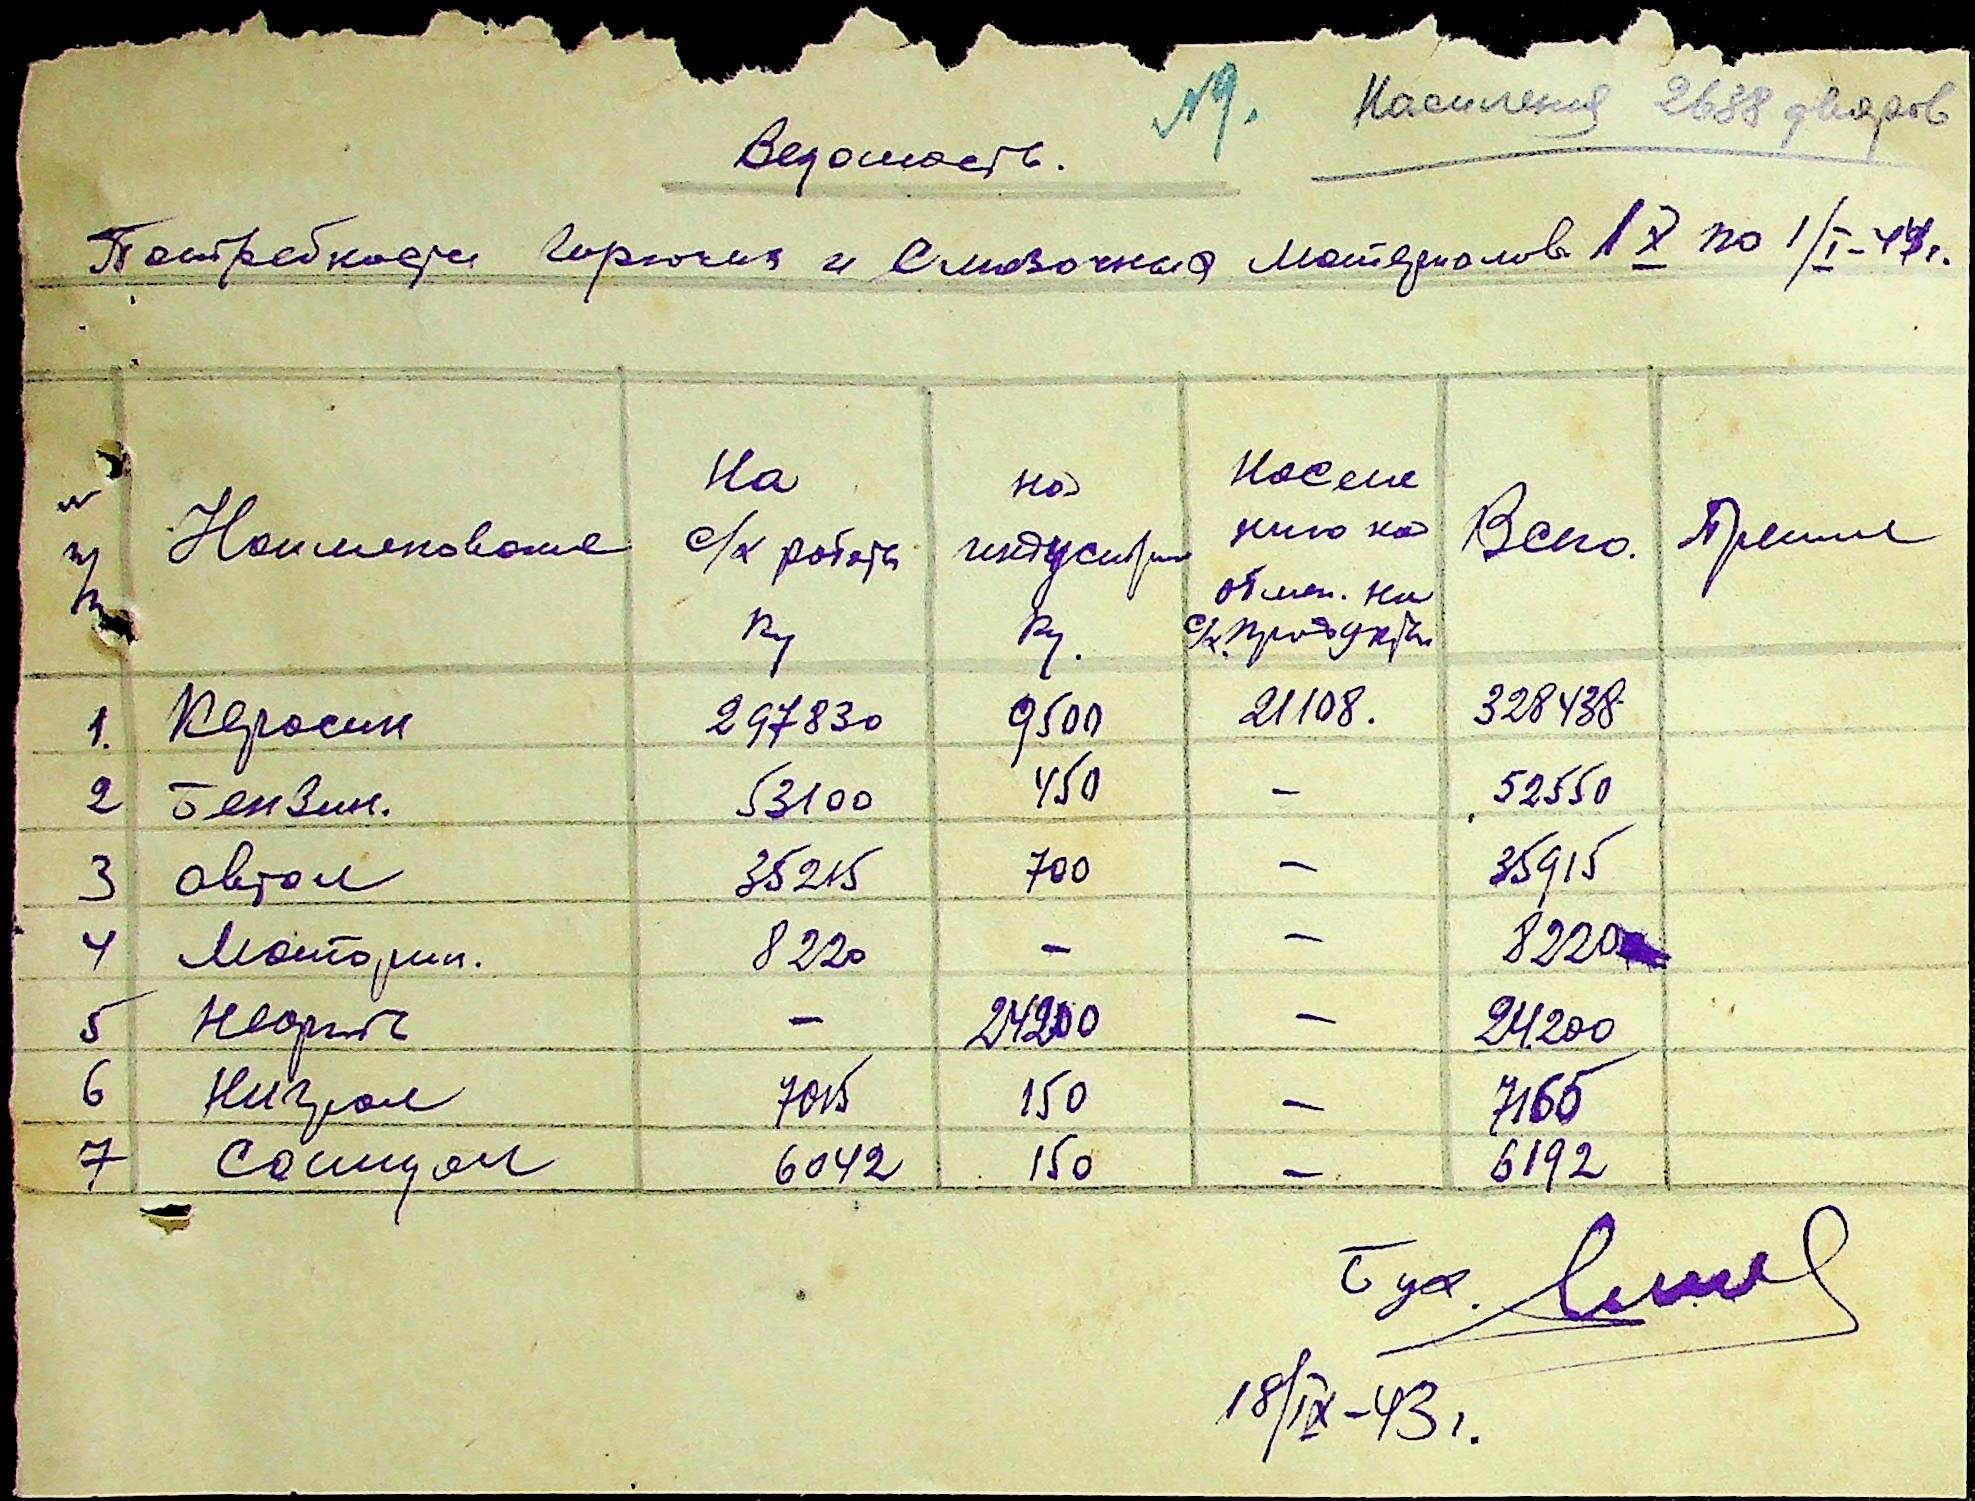 №9. Населения 2688 дворов
Ведомость.
Потребности Горючих и Смазочных Материалов 1 X по 1/I-44г.
№ п/п Наименование На с/х работы кг на индустрию кг. Населению на обмен. на с/х. продукты Всего. Приме
1. Керосин 297830 9500 21108. 328438
2 Бензин. 53100 450 – 52550
3 автол 35215 700 – 35915
4 Моторин. 8220 – – 8220
5 Нефть – 24200 – 24200
6 Нигрол 7015 150 – 7165
7 Солидол 6042 150 – 6192
Бух.
18/IX-43г.